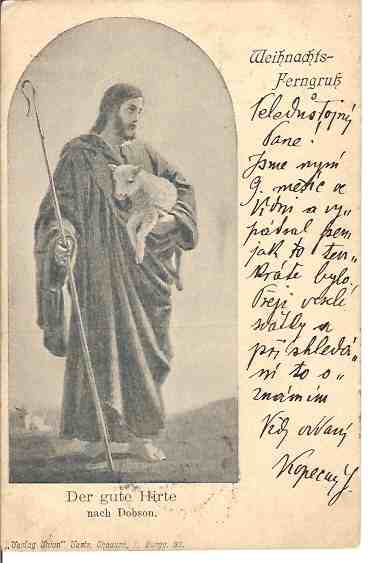 Weihnachts-
Ferngruß
Veledůstojný
Pane!
Jsme nyní
9. měsíc ve
Vídni a vy„
pátral jsem
jak to ten„
kráte bylo.
Přeji veselé
svátky a
při shledá„
ní to o„
známím
Vždy oddaný
Kopecný J.
Der gute Hirte
nach Dobson.
„Verlag Union"